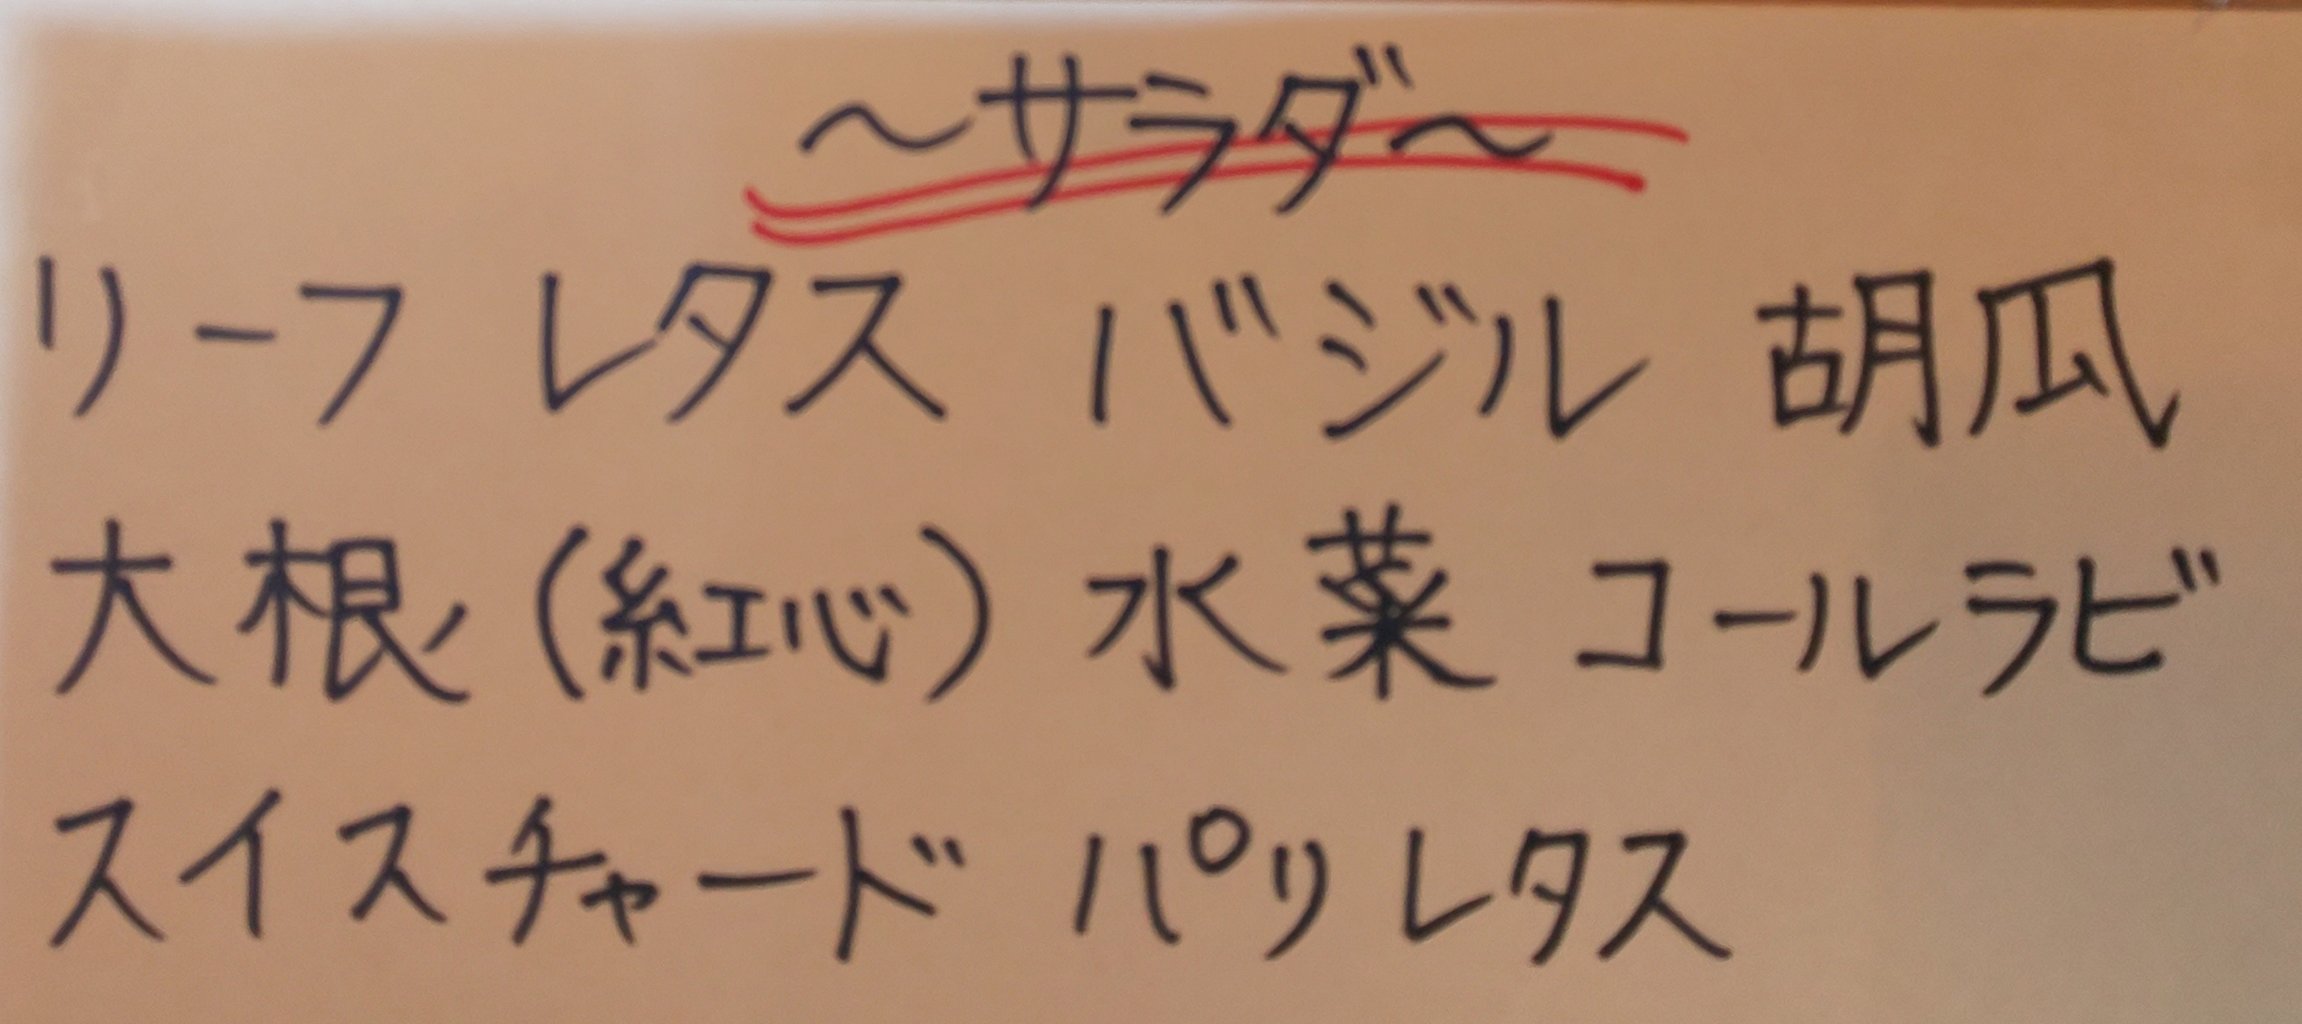 ～サラダ～
リーフ レタス バジル 胡瓜
大根（紅心）水菜 コールラビ
スイスチャード パリレタス